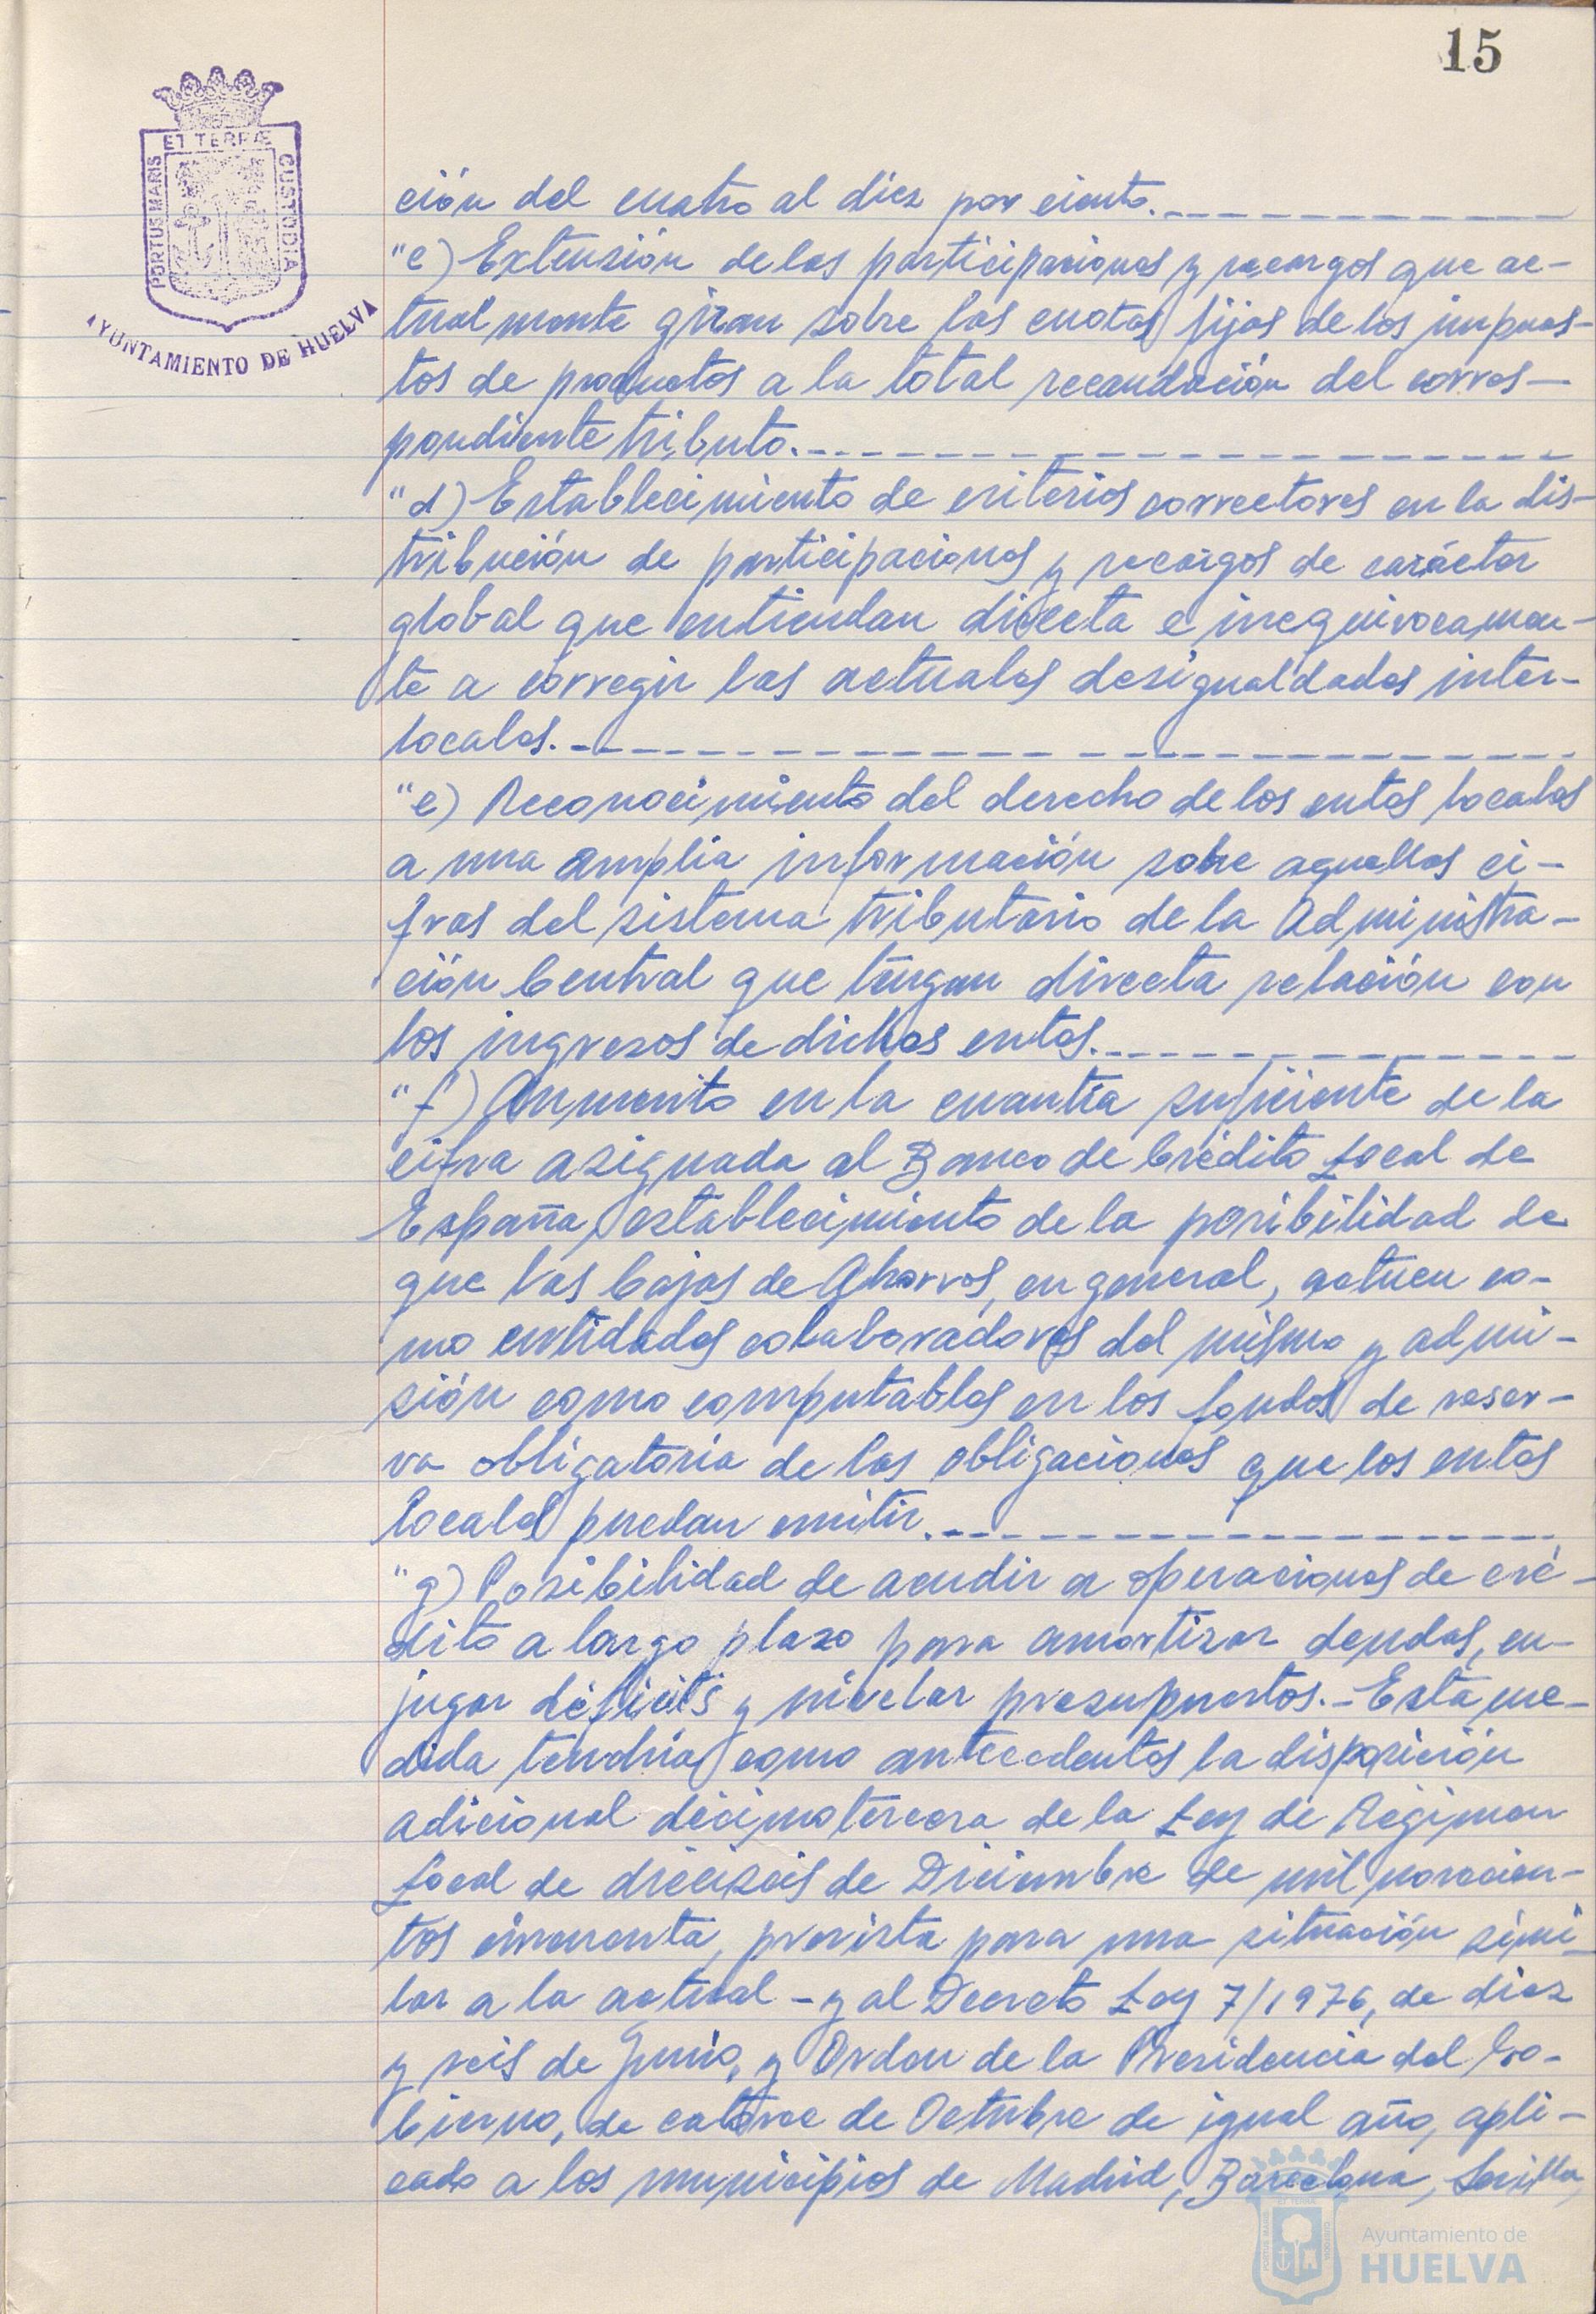 15
ET TERRÆ
PORTUS MARIS
CUSTODIA
AYUNTAMIENTO DE HUELVA
ción del cuatro al diez por ciento.
"c) Extensión de las participaciones y recargos que ac-
tualmente giran sobre las cuotas fijas de los impues-
tos de productos a la total recaudación del corres-
pondiente tributo.
"d) Establecimiento de criterios correctores en la dis-
tribución de participaciones y recargos de carácter
global que entiendan directa e inequivocamen-
te a corregir las actuales desigualdades inter-
locales.
"e) Reconocimiento del derecho de los entes locales
a una amplia información sobre aquellas ci-
fras del sistema tributario de la Administra-
ción Central que tengan directa relación con
los ingresos de dichos entes.
"f) Aumento en la cuantía suficiente de la
cifra asignada al Banco de Crédito Local de
España, establecimiento de la posibilidad de
que las Cajas de Ahorros, en general, actuen co-
mo entidades colaboradoras del mismo y admi-
sión como computables en los fondos de reser-
va obligatoria de las obligaciones que los entes
locales puedan emitir.
"g) Posibilidad de acudir a operaciones de cré-
dito a largo plazo para amortizar deudas, en-
jugar déficits y nivelar presupuestos.- Esta me-
dida tendría como antecedentes la disposición
adicional décimotercera de la Ley de Régimen
Local de dieciseis de Diciembre de mil novecien-
tos cincuenta, prevista para una situación simi-
lar a la actual - y al Decreto Ley 7/1976, de diez
y seis de Junio, y Orden de la Presidencia del Go-
bierno, de catorce de Octubre de igual año, apli-
cado a los municipios de Madrid, Barcelona, Sevilla,
Ayuntamiento de
HUELVA